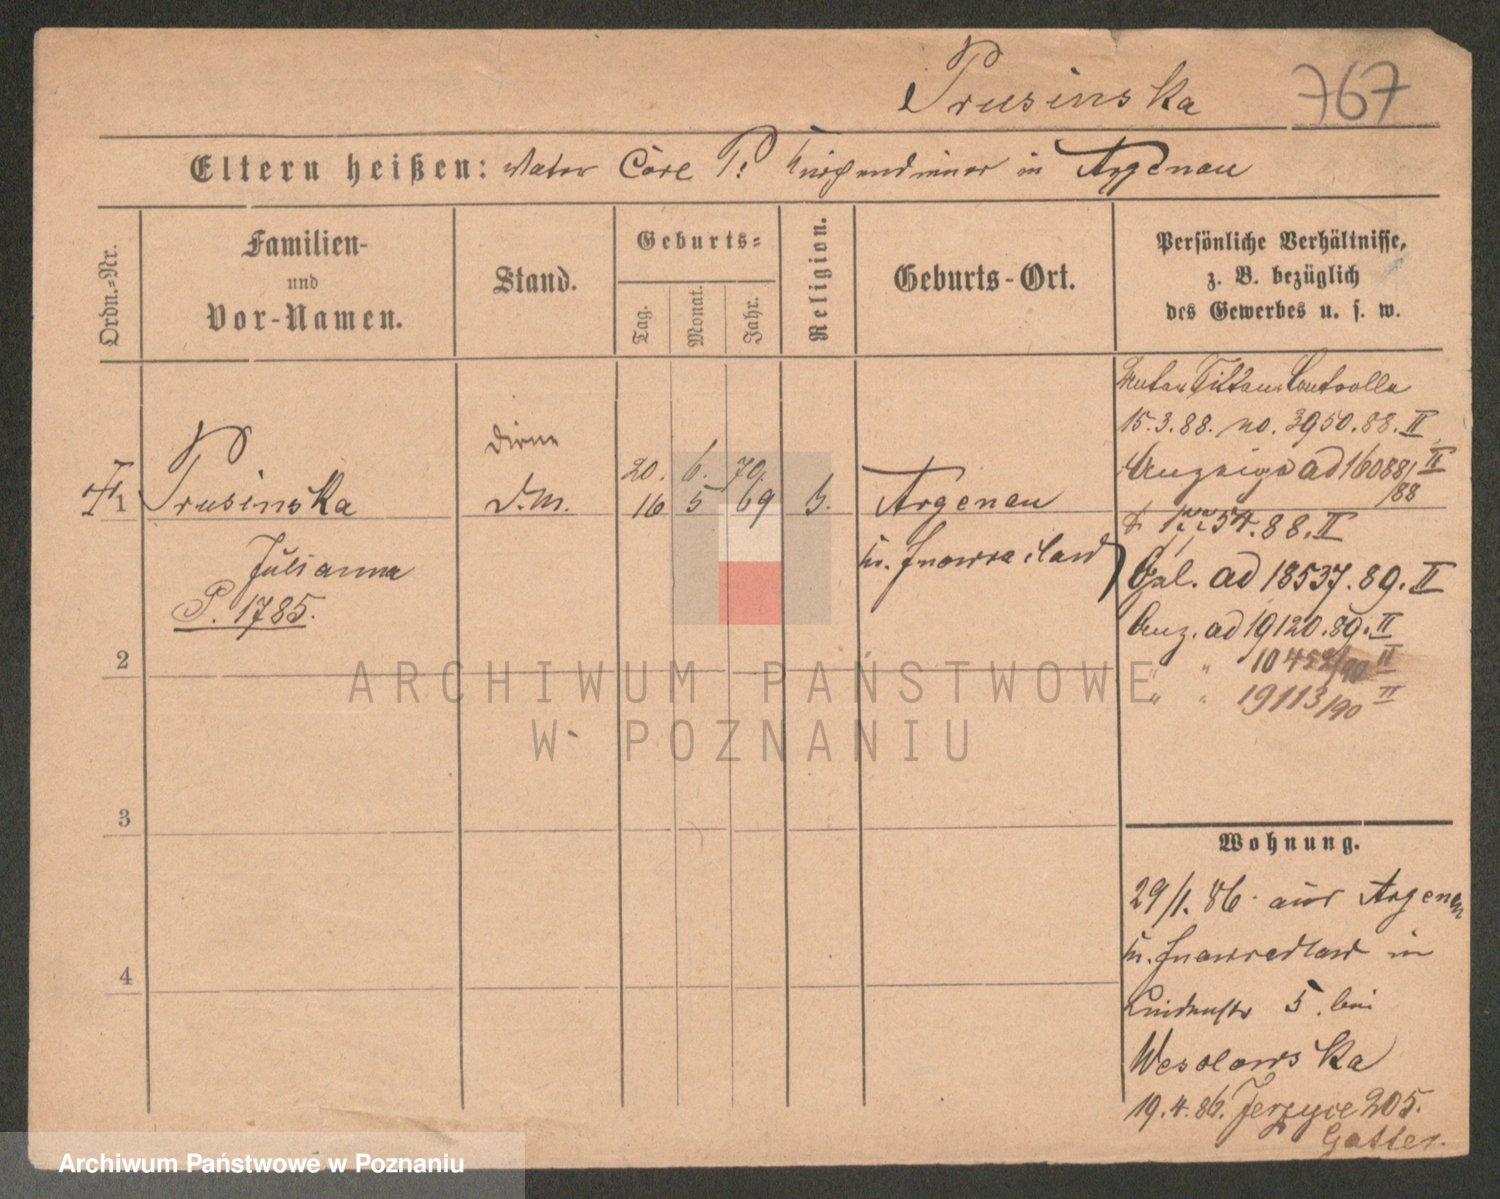 Prusinska 767
Eltern heißen: Vater Carl P. Kirchendiener in Argenau
Ordn.=Nr.
Familien-
und
Vor-Namen.
Stand.
Geburts=
Tag.
Monat.
Jahr.
Religion.
Geburts-Ort.
Persönliche Verhältnisse,
z. B. bezüglich
des Gewerbes u. s. w.
Unter Sitten Controlle
15.3.88. no. 3950.88.II
Anzeige ad 16088/88 II
54.88.II
ad 18537.89.II
Anz. ad 19120.89.II
" " 10452/90 II
" " 19113/90 II
1 Prusinska
Julianna
P. 1785.
Dirne
D.M.
20. 6. 70.
16 5 69
Argenau
2
3
4
ARCHIWUM PAŃSTWOWE
W POZNANIU
Wohnung.
29/1. 86. aus Argenau
in
Lindenstr 5. bei
Wesolowska
19.4.86. Jerzyce 205.
Archiwum Państwowe w Poznaniu